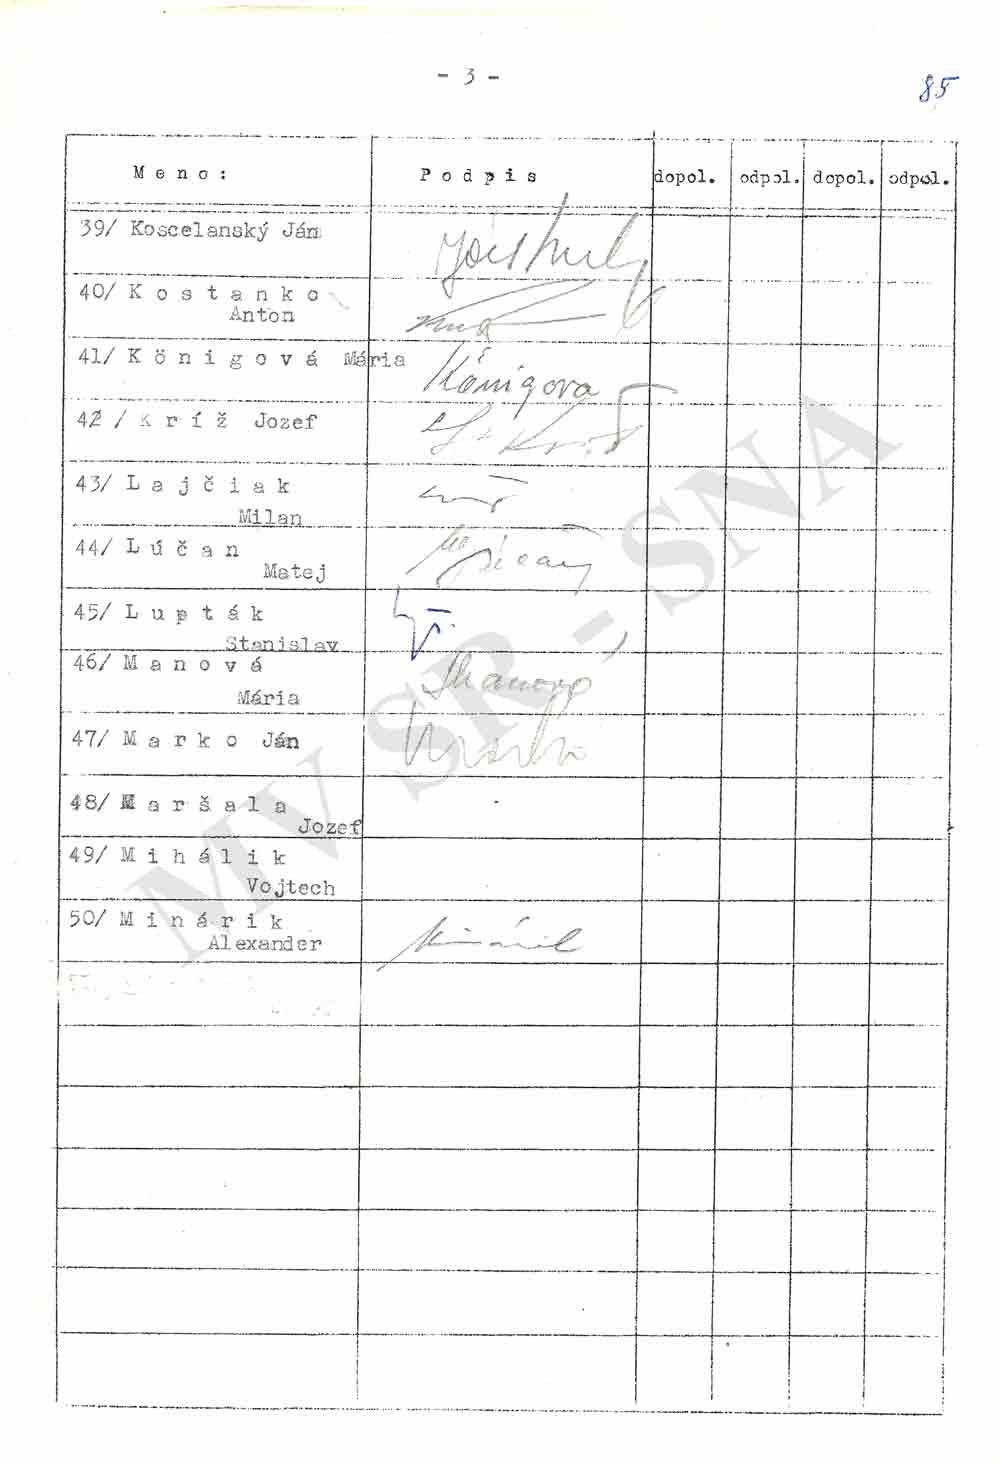 - 3 -
85
Meno: Podpis dopol. odpol. dopol. odpol.
39/ Koscelanský Ján
40/ Kostanko
Anton
41/ Königová Mária
Königova
42/ Kríž Jozef
43/ Lajčiak
Milan
44/ Lúčan
Matej
45/ Lupták
Stanislav
46/ Manová
Mária
Manova
47/ Marko Ján
Marko
48/ Maršala
Jozef
49/ Mihálik
Vojtech
50/ Minárik
Alexander
Minárik
MV SR - SNA